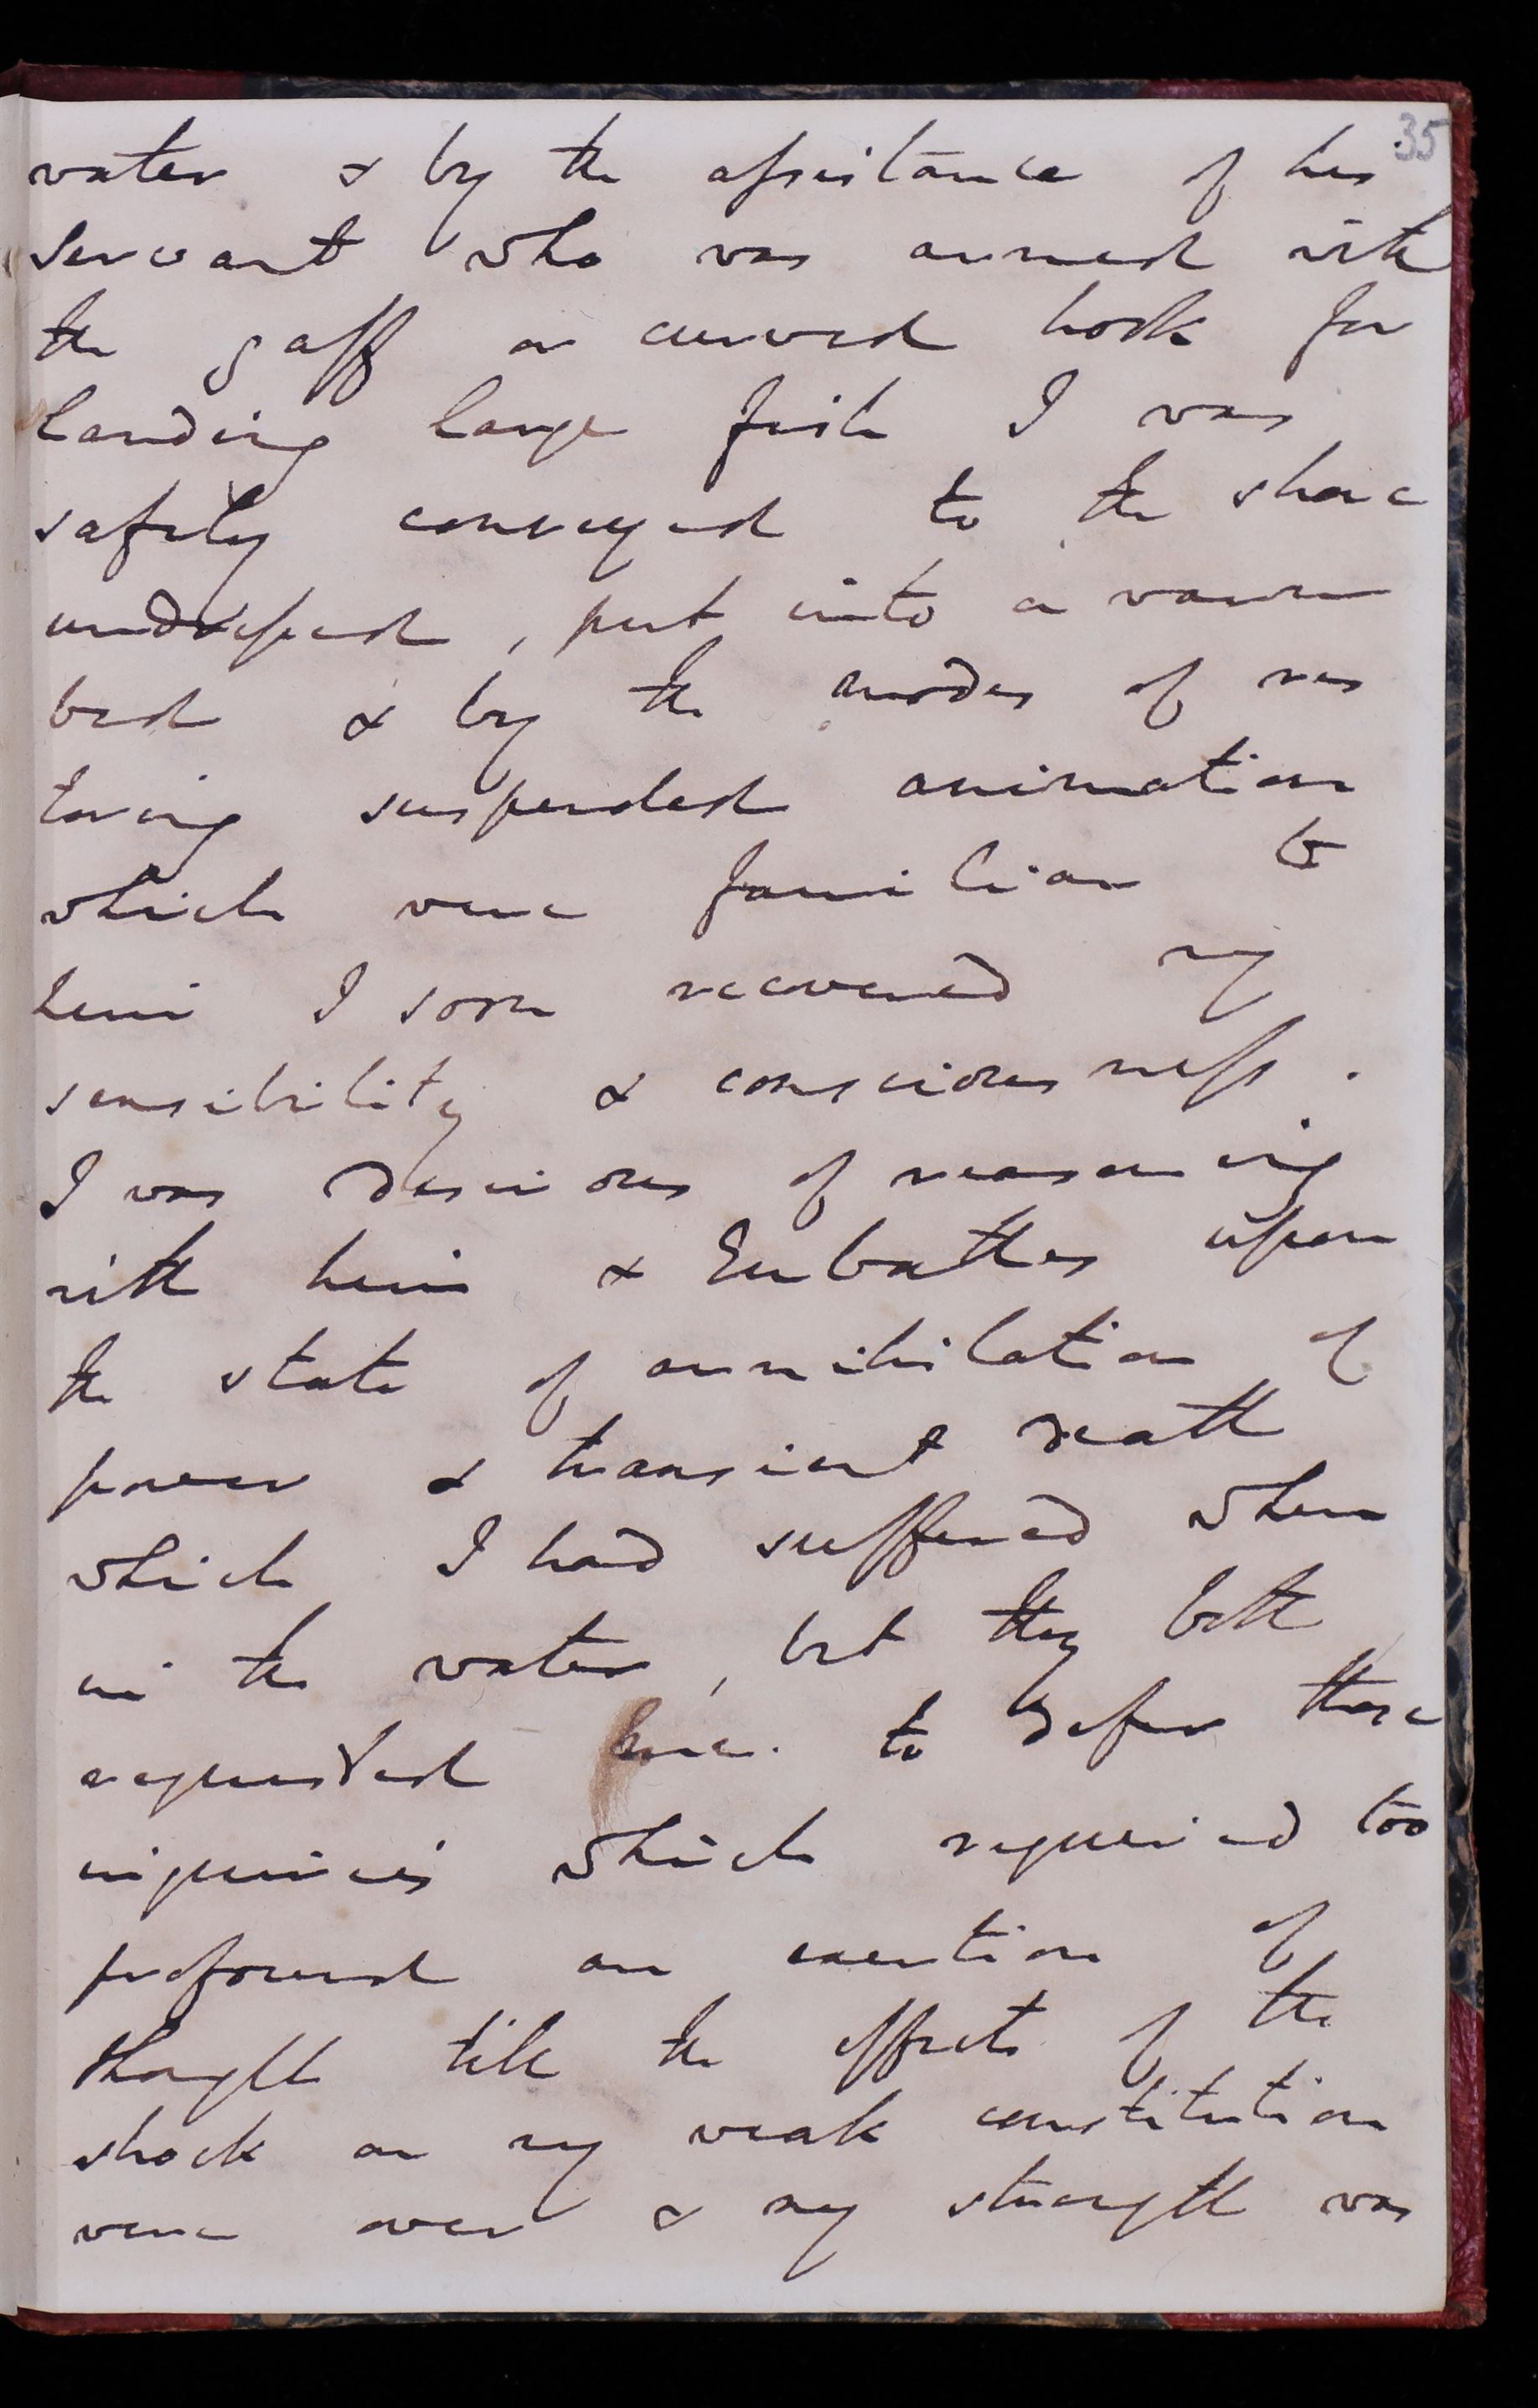 35
water & by the assistance of his
servant who was armed with
the gaff or curved hook for
landing large fish I was
safely conveyed to the shore
undressed, put into a warm
bed & by the modes of res
toring suspended animation
which were familiar to
him I soon recovered my
sensibility & consciousness.
I was desirous of reasoning
with him & Eubathes upon
the state of annihilation of
power & transient death
which I had suffered when
in the water, but they both
requested me to defer those
inquiries which required too
profound an exertion of
thought till the effects of the
shock on my weak constitution
were over & my strength was